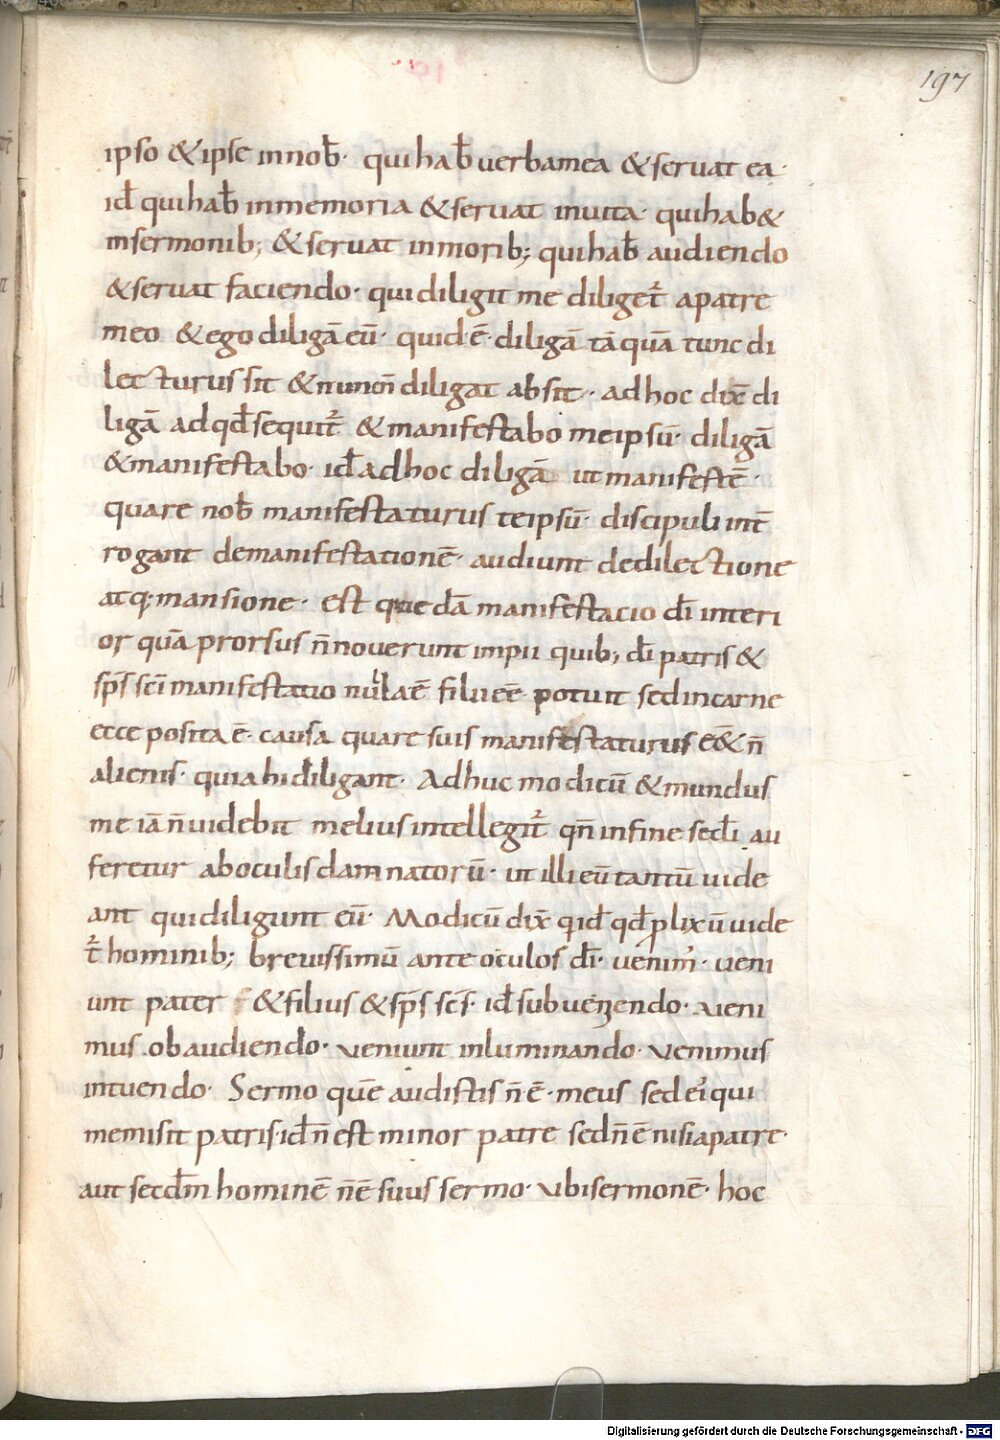 197
ipso & ipse in nob̄· qui hab̄ uerba mea & seruat ea·
id̄ qui hab̄ in memoria & seruat in uita· qui hab&
in sermonib; & seruat in morib; qui hab̄ audiendo
& seruat faciendo· qui diligit me diliget̄ a patre
meo & ego diligā eū· quid·ē· diligā tā quā tunc di
lecturus sit & nunc n̄ diligat absit·· ad hoc dix̄ di
ligā ad qd̄ sequit̄ & manifestabo me ipsū· diligā
& manifestabo· id̄ ad hoc diligā ut manifestē·
quare nob̄ manifestaturus te ipsū· discipuli int̄
rogant de manifestationē· audiunt de dilectione
atq; mansione· est quedā manifestacio dī interi
or quā prorsus n̄ nouerunt impii quib; dī patris &
sp̄s sc̄i manifestatio nulla ē filii eē potuit sed in carne
ecce posita ē· causa quare suis manifestaturus eē& n̄
alienis· quia hi diligant· Adhuc modicū & mundus
me iā n̄ uidebit melius intellegit̄ qn̄ in fine secl̄i au
feretur ab oculis damnatorū· ut illi eū tantū uide
ant qui diligunt eū· Modicū dix̄ q id̄ qd̄ plixū uide
t̄ hominib; breuissimū ante oculos dī· uenim̄· ueni
unt pater & filius & sp̄s sc̄s· id̄ subueniendo· ueni
mus obaudiendo· ueniunt inluminando· uenimus
intuendo· Sermo quē audistis n̄·ē· meus sed ei᾽ qui
me misit patris· id̄ n̄ est minor patre sed n̄ ē nisi a patre·
aut secd̄m hominē n̄ē suus sermo· ubi sermonē· hoc
Digitalisierung gefördert durch die Deutsche Forschungsgemeinschaft - DFG